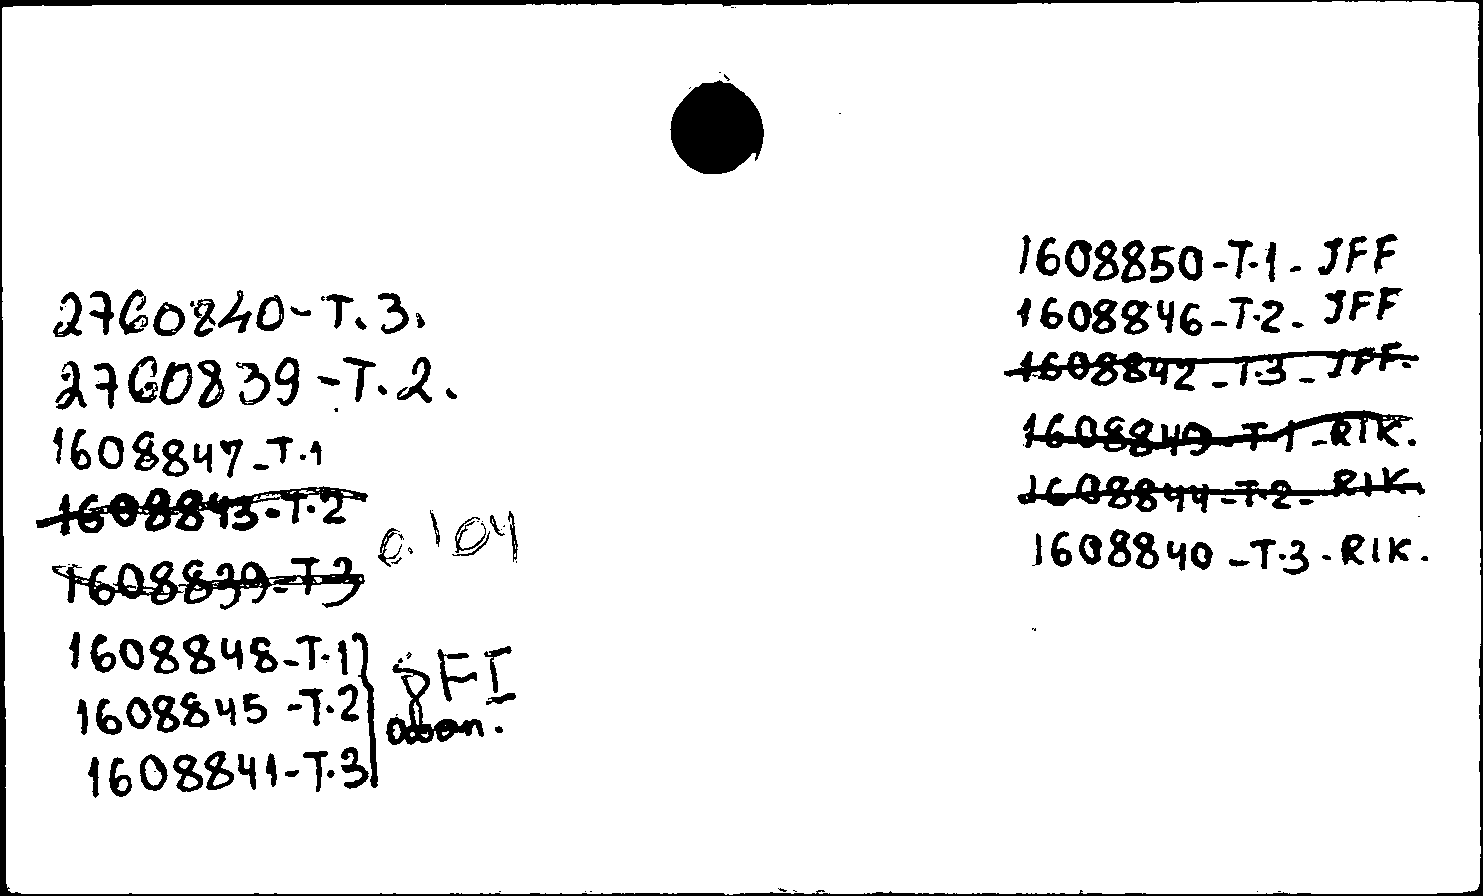 2760840-T.3.
2760839-T.2.
1608847-T.1
1608843-T.2
0.104
1608839-T3
1608848-T.1
1608845-T.2
FI
1608841-T.3
1608850-T.1- JFF
1608846-T.2- JFF
1608842-T.3- JFF.
1608849-T.1-RIK.
1608844-T.2- RIK.
1608840-T.3-RIK.